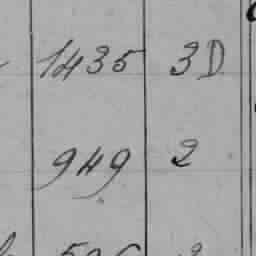 1435 3D
949 2